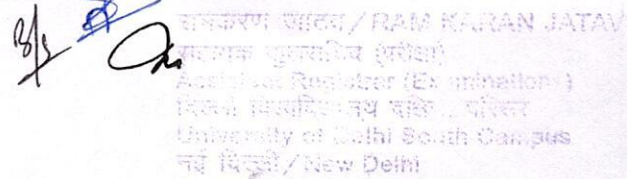 रामकरण जाटव / RAM KARAN JATAV
सहायक कुलसचिव (परीक्षा)
Assistant Registrar (Examinations)
दिल्ली विश्वविद्यालय दक्षिण परिसर
University of Delhi South Campus
नई दिल्ली / New Delhi